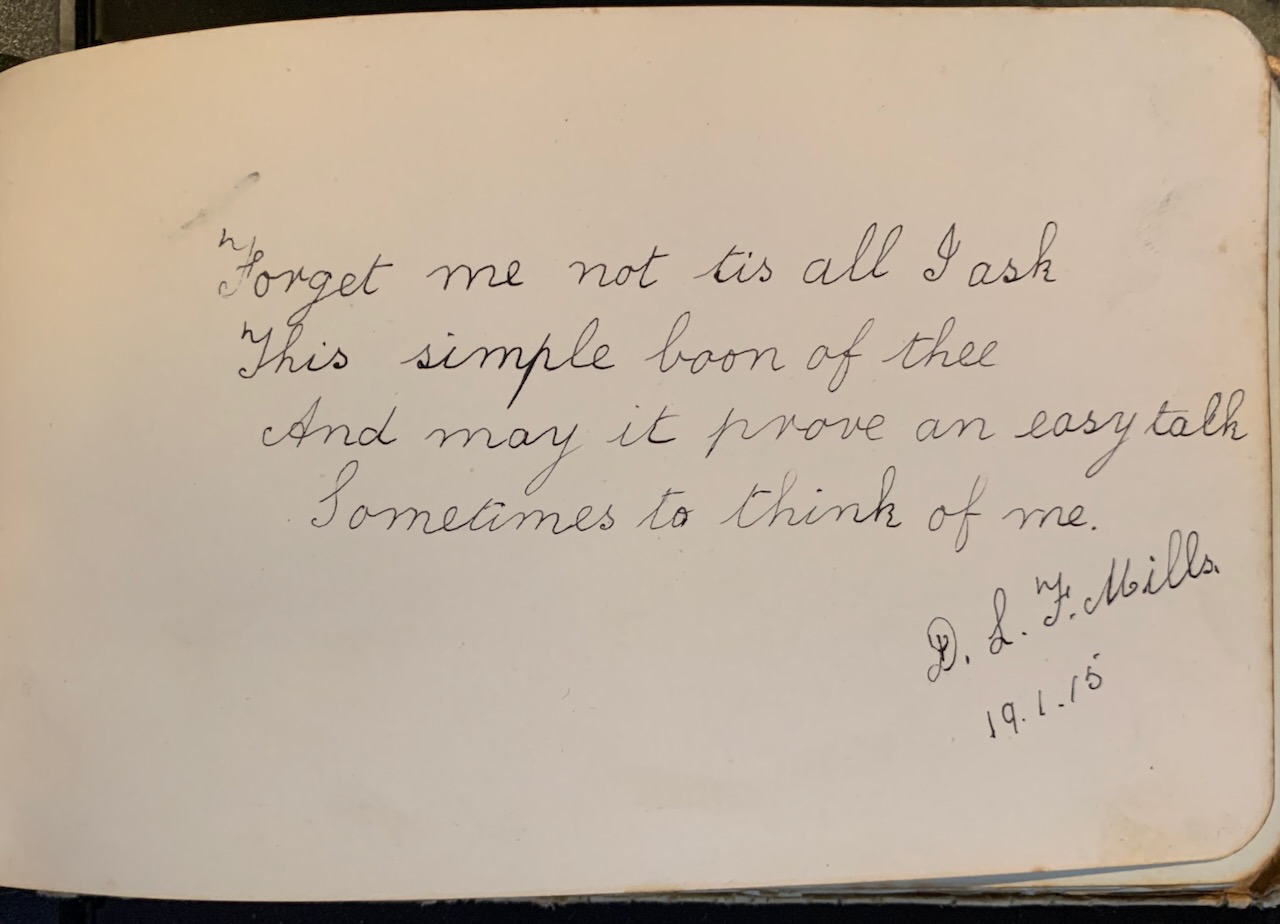 Forget me not tis all I ask
This simple boon of thee
And may it prove an easy talk
Sometimes to think of me.
D. L. F. Mills.
19.1.15